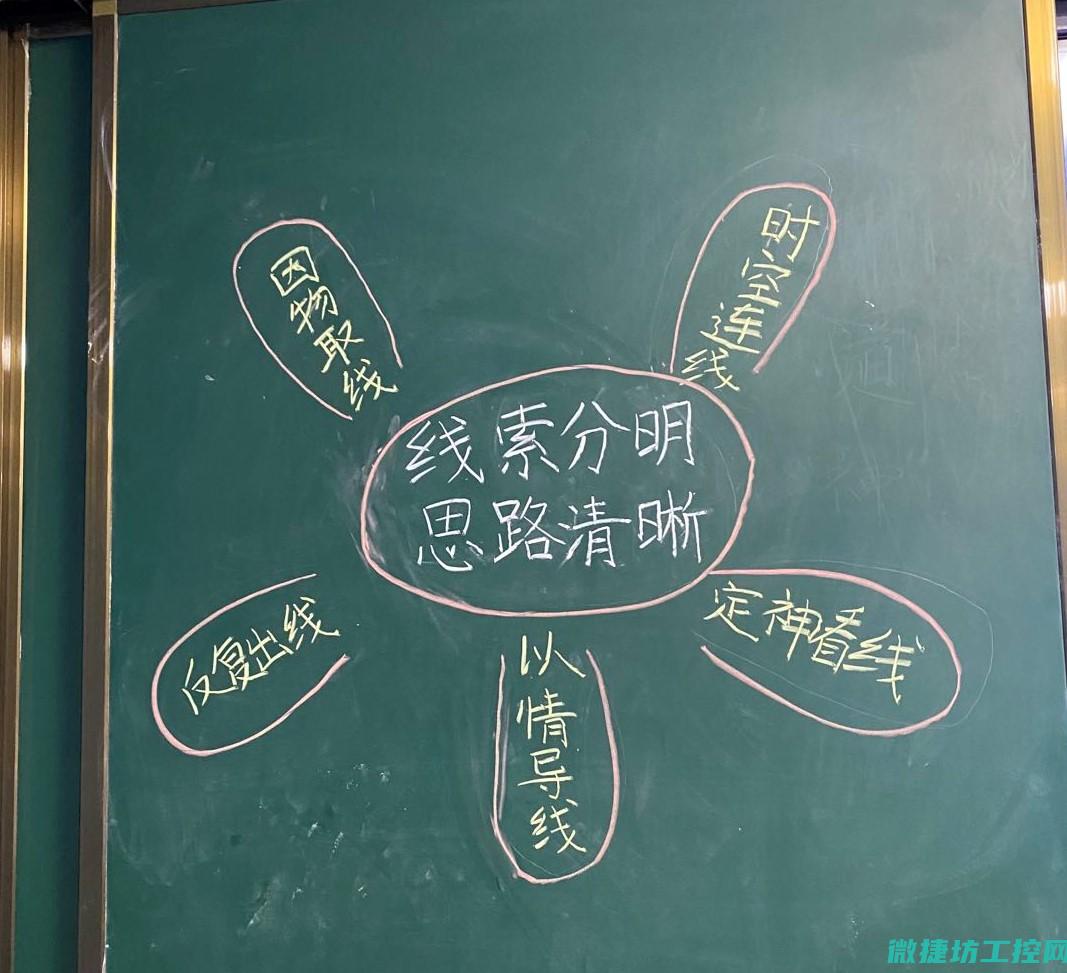 因物取线
时空连线
线索分明
思路清晰
定神看线
反复出线
以情导线
微捷坊工控网